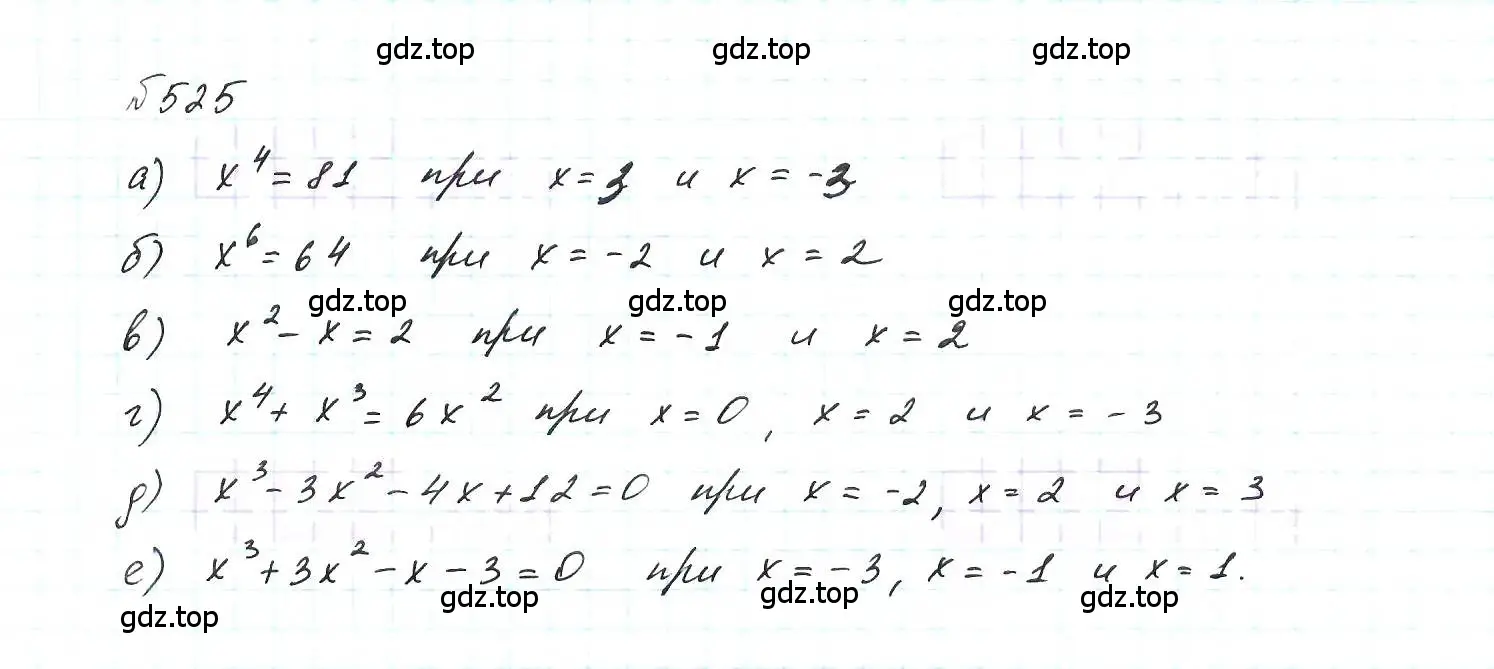 gdz.top gdz.top gdz.top
№525
а) x⁴ = 81 при x = 3 и x = -3
б) x⁶ = 64 при x = -2 и x = 2
gdz.top gdz.top gdz.top
в) x² - x = 2 при x = -1 и x = 2
г) x⁴ + x³ = 6x² при x = 0, x = 2 и x = -3
д) x³ - 3x² - 4x + 12 = 0 при x = -2, x = 2 и x = 3
е) x³ + 3x² - x - 3 = 0 при x = -3, x = -1 и x = 1.
gdz.top gdz.top gdz.top gdz.top